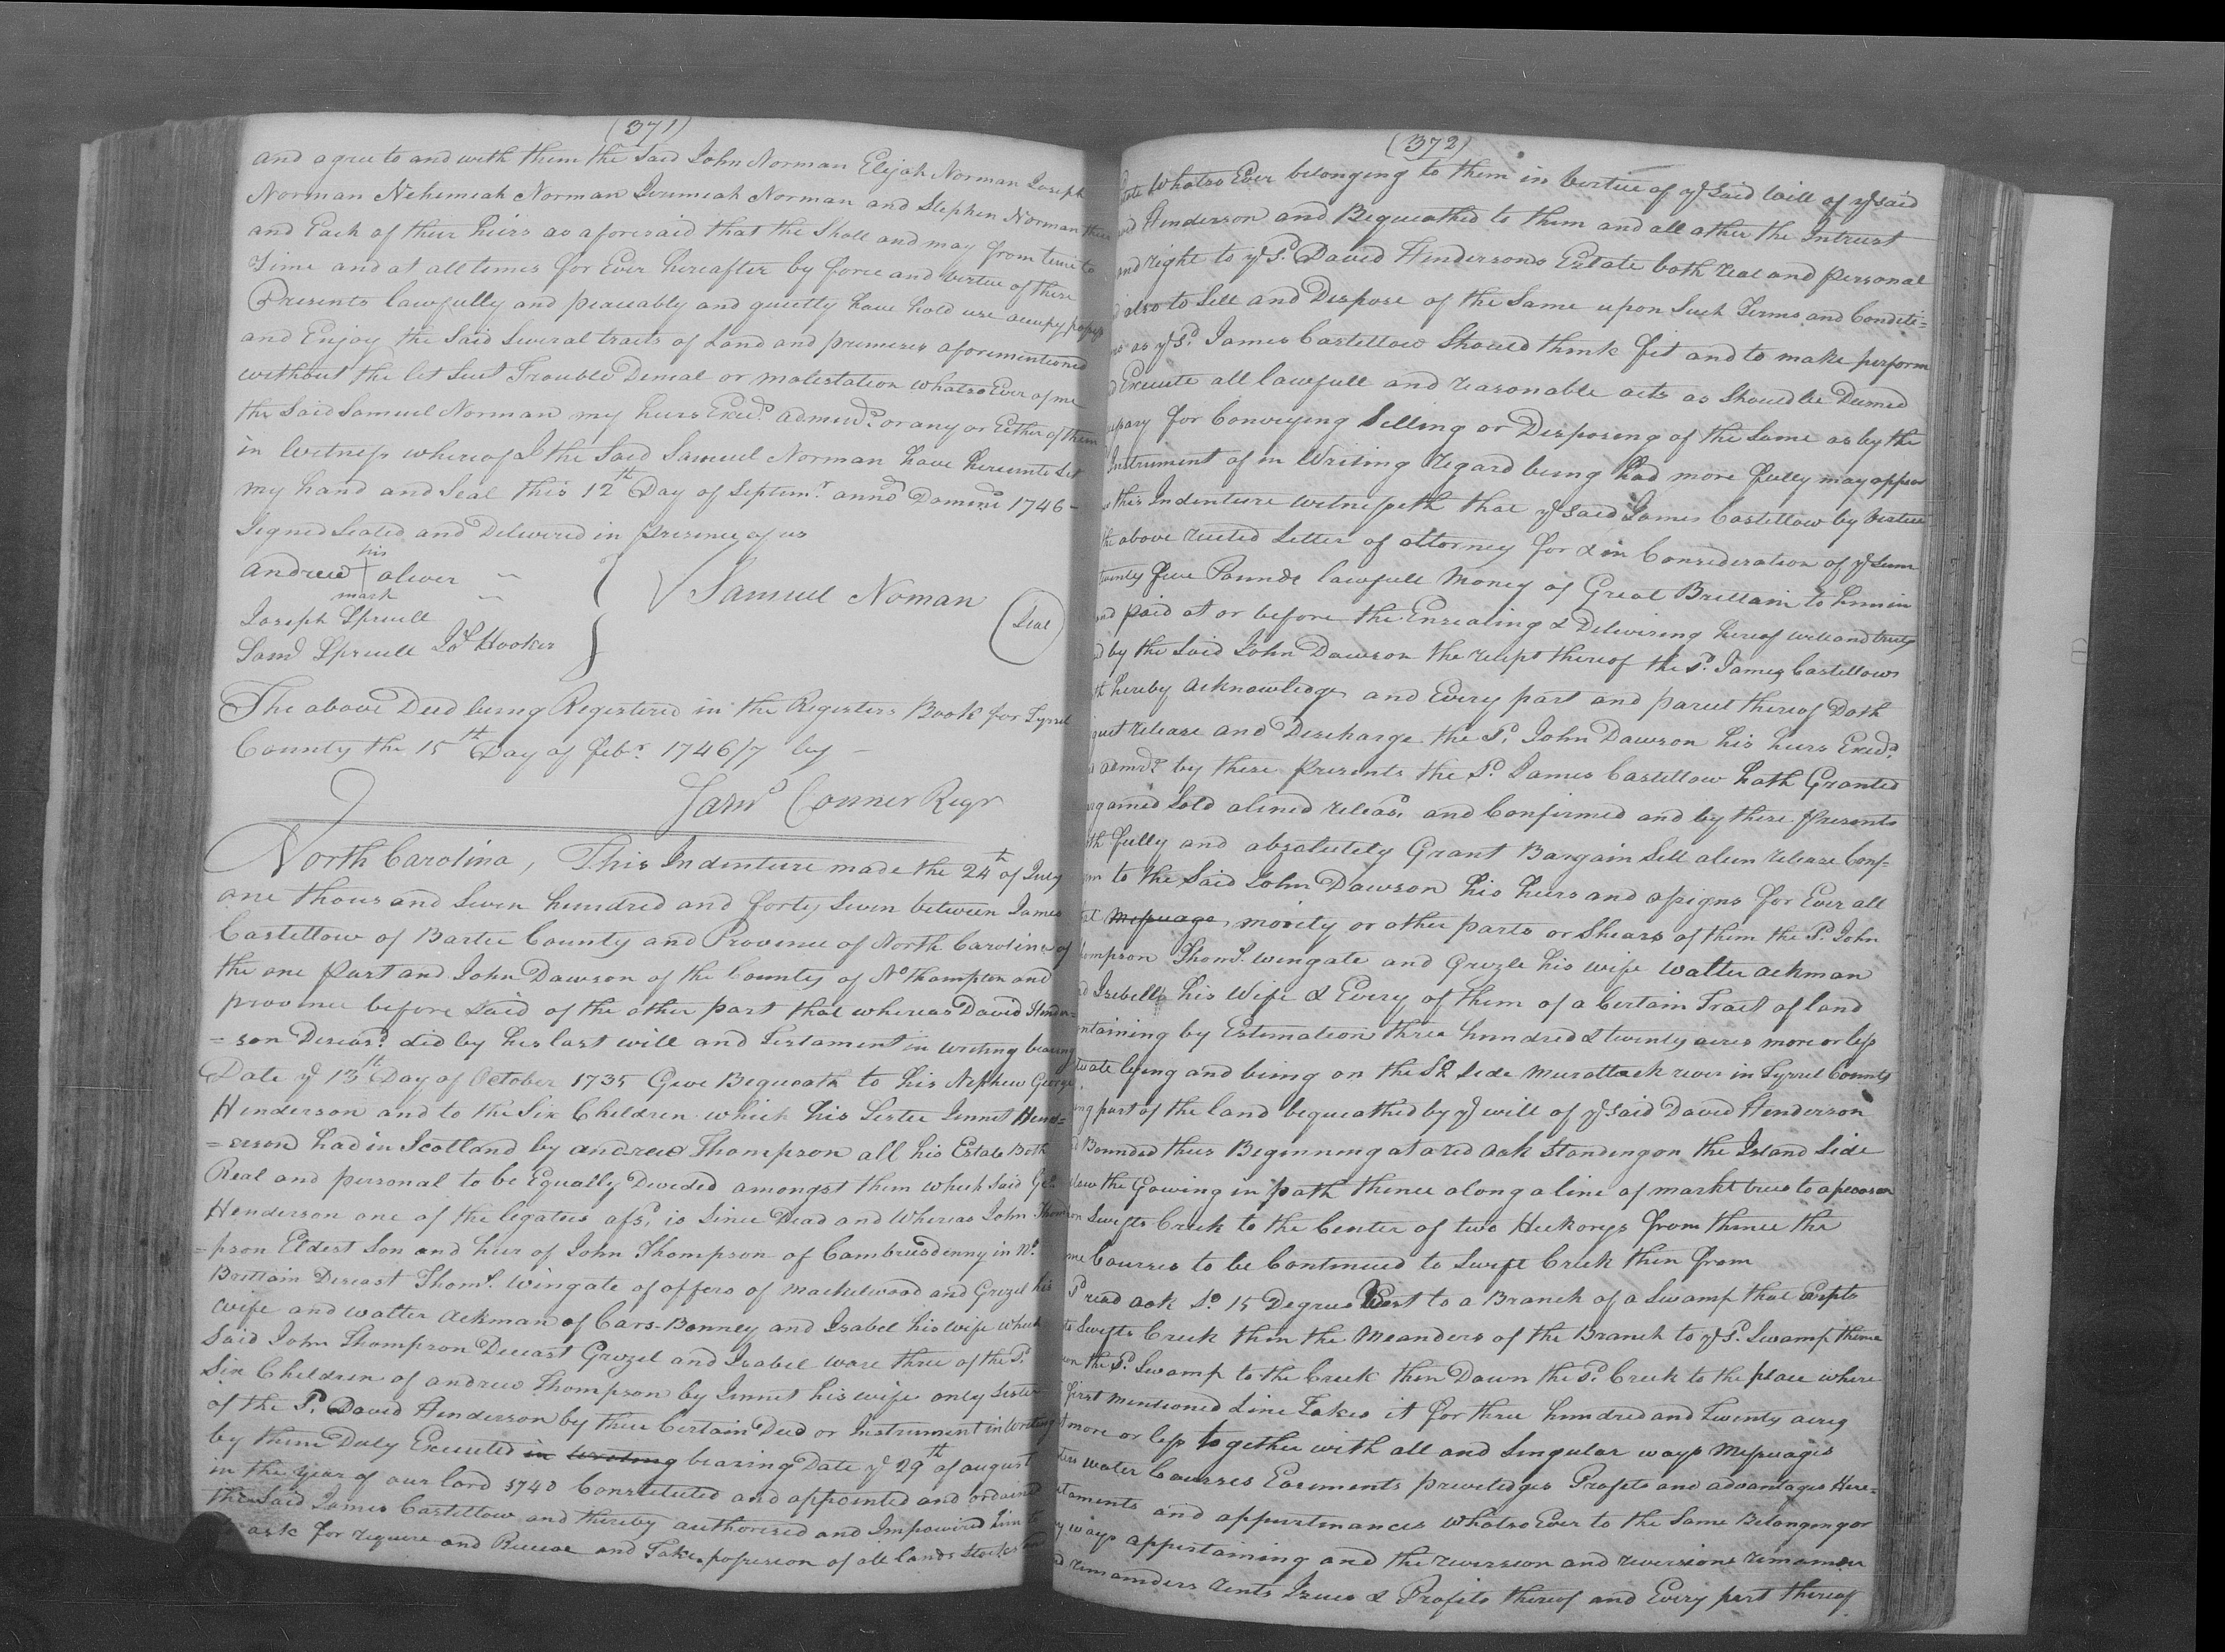 (371)
and agree to and with them the Said John Norman Elijah Norman Joseph
Norman Nehemiah Norman Jeremiah Norman and Stephen Norman their
and Each of their heirs as aforesaid that the Shall and may from time to
Time and at all times for Ever hereafter by force and virtue of these
Presents lawfully and peaceably and quietly have hold use occupy possess
and Enjoy the Said Several tracts of Land and premeses aforementioned
without the let Suit Trouble Denial or molestation whatsoEver of me
the Said Samuel Norman my heirs Execrs. admrs. or any or Either of them
in Witness whereof I the Said Samuel Norman have hereunto Set
my hand and Seal this 12th Day of Septemr. anno Domini 1746 -
Signed Sealed and Delivered in presence of us
his
andrew + oliver
mark
Samuel Noman
Seal
Joseph Spruell
Saml Spruell Jos Hooker
The above Deed being Registered in the Registers Book for Tyrrel
County the 15th Day of Febr. 1746/7 by -
Conner Regr
North Carolina, This Indenture made the 24th of July
one thousand Seven hundred and forty Seven between James
Castellow of Bartee County and Province of North Carolina of
the one Part and John Dawson of the County of No.thampton and
province before Said of the other part that whereas David Hender=
=son Deceasd. did by his last will and Testament in writing bearing
Date ye 13th Day of October 1735 Give Bequeath to his Nephew George
Henderson and to the Six Children which his Sister Jennet Hend=
=erson had in Scotland by andrew Thompson all his Estate Both
Real and personal to be Equally Devided amongst them which Said Geo.
Henderson one of the legatees afsd. is Since Dead and Whereas John Thom
=pson Eldest Son and heir of John Thompson of in No.
Brittain Deceast Thoms. Wingate of offers of and Grozel his
wife and Walter Ackman of Cars-Bonney and Isabel his wife which
Said John Thompson Deceast Grozel and Isabel ware three of the Sd.
Six Children of andrew Thompson by Jennet his wife only Sister
of the Sd. David Henderson by their Certain Deed or Instrument in writing
by them Duly Executed in writing bearing Date ye 29th of august
in the year of our lord 1740 Constituted and appointed and ordained
the Said James Castellow and thereby authorised and Impowired him to
ask for require and Receive and Take possesion of all lands Stocks and
(372)
Estate WhatsoEver belonging to them in vertue of ye Said Will of ye said
Henderson and Bequeathed to them and all other the Intrust
and right to ye Sd. David Hendersons Estate both real and personal
also to Sell and Dispose of the Same upon Such Terms and Conditi=
as ye Sd. James Castellow Should think fit and to make perform
Execute all lawfull and reasonable acts as Should be Deemed
for Conveying Selling or Disposing of the Same as by the
Instrument of in Writing Regard being had more fully may appear
this Indenture witnesseth that ye said James Castellow by Vertue
the above recited Letter of attorney for & in Consideration of ye Sum
twenty five Pounds lawfull Money of Great Brittain to him in
paid at or before the Ensealing & Delivering hereof well and truly
by the Said John Dawson the receipt thereof the Sd. James Castellow
hereby acknowledge and Every part and parcel thereof Doth
release and Discharge the Sd. John Dawson his heirs Execrs.
admrs. by these Presents the Sd. James Castellow hath Granted
Sold aliened releasd. and Confirmed and by these Presents
fully and absolutely Grant Bargain Sell alien release Conf=
to the Said John Dawson his heirs and assigns for Ever all
Messuage, moiety or other parts or Shears of them the Sd. John
Thoms. Wingate and Grozle his wife Walter Ackman
Izebella his Wife & Every of them of a Certain Tract of land
by Estemation three hundred & twenty acres more or less
lying and being on the So. Side Murattock river in Tyrrel County
part of the land bequeathed by ye will of ye said David Henderson
Bounded thus Beginning at a red oak Standing on the Island Side
the Gowing in path thence along a line of markt trees to a
Swifts Creek to the Center of two Heckorys from thence the
Courses to be Continued to Swift Creek then from
Sd read oak So. 15 Degrees West to a Branch of a Swamp that
Swifts Creek then the Meanders of the Branch to ye Sd. Swamp thence
the Sd. Swamp to the Creek then Down the Sd. Creek to the place where
first mentioned Line Takes it for three hundred and Twenty acres
more or less together with all and Singular ways Messuages
water Courses Easments preveledges Profets and advantages Here=
and appurtinances whatsoEver to the Same Belonging or
ways appertaining and the reversion and reversions remander
remainders rents Issues & Profits thereof and Every part thereof